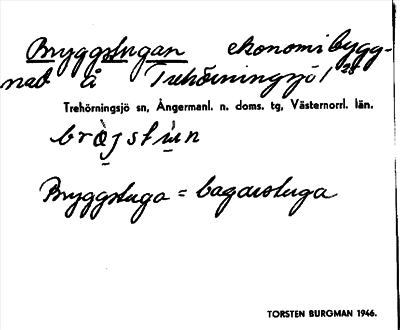 Bryggstugan ekonomibygg-
nad å Trehörningsjö 1²⁸
Trehörningsjö sn, Ångermanl. n. doms. tg, Västernorrl. län.
bràjstùn
Bryggstuga = bagarstuga
TORSTEN BURGMAN 1946.